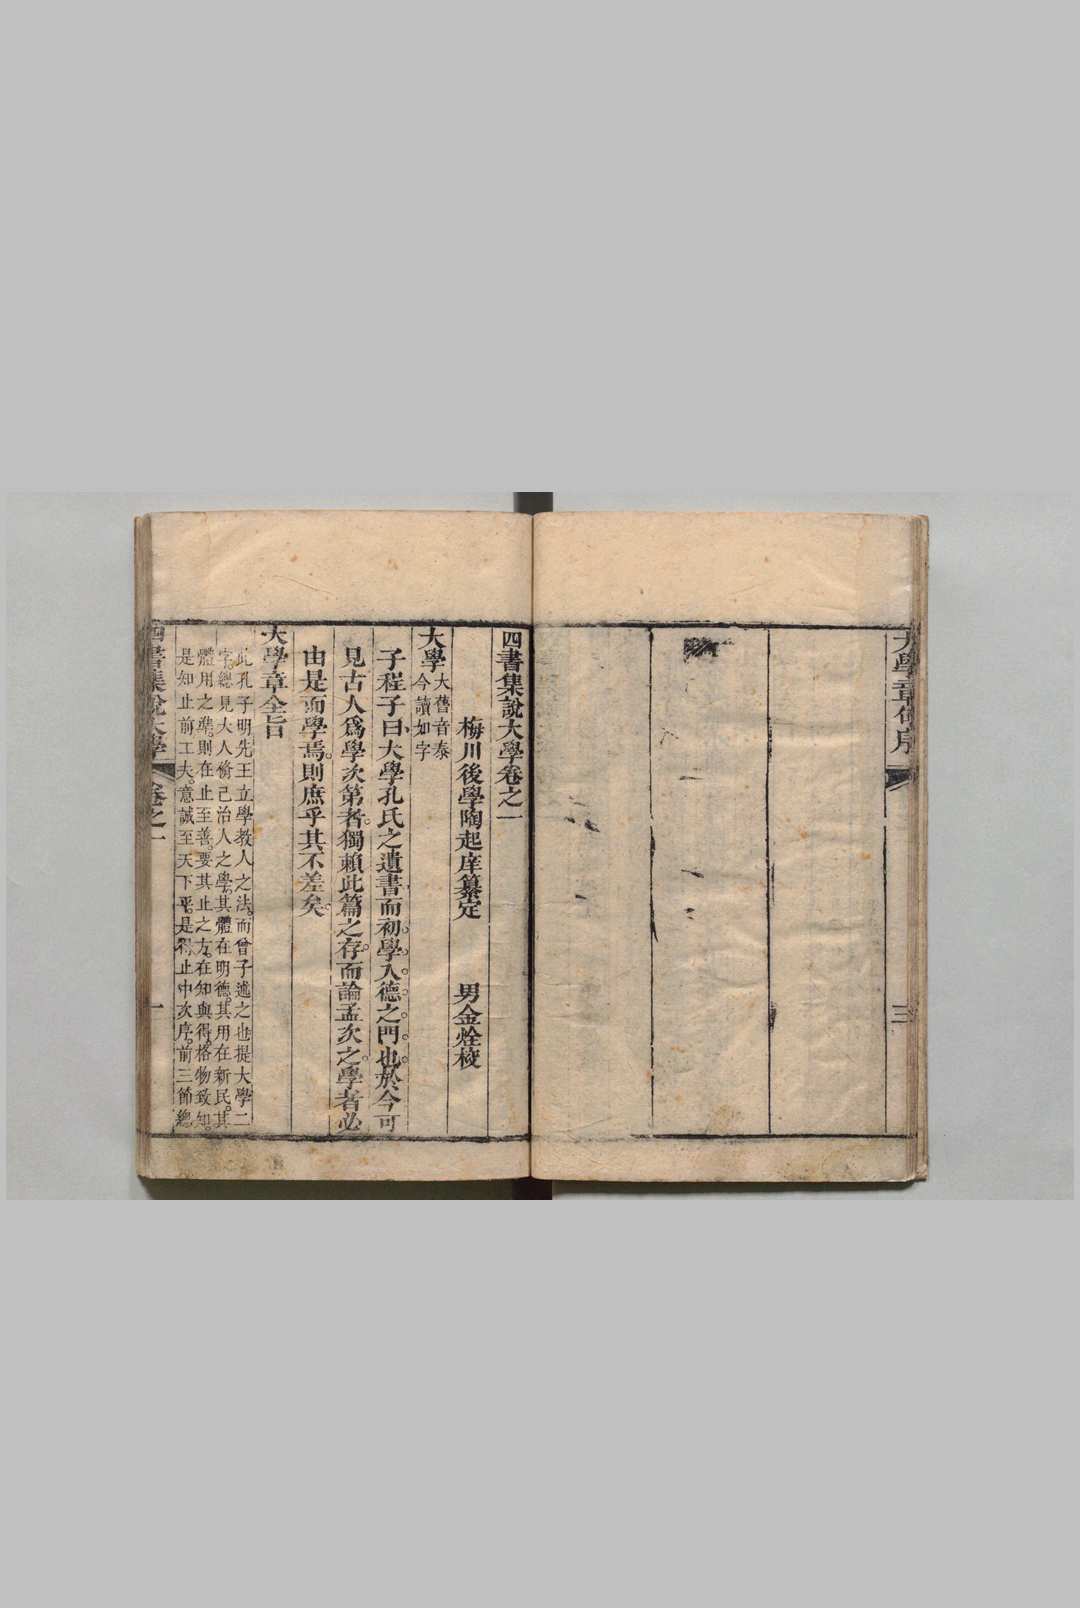 大學章句序
三
四書集說大學卷之一
梅川後學陶起庠纂定　男金烇校
大學大舊音泰
今讀如字
子程子曰大學孔氏之遺書而初學入德之門也於今可
見古人爲學次第者獨賴此篇之存而論孟次之學者必
由是而學焉則庶乎其不差矣
大學章全旨
此孔子明先王立學教人之法而曾子述之也提大學二
字總見大人脩己治人之學其體在明德其用在新民其
體用之準則在止至善要其止之方在知與得格物致知
是知止前工夫意誠至天下平是得止中次序前三節總
四書集說大學
卷之一
一